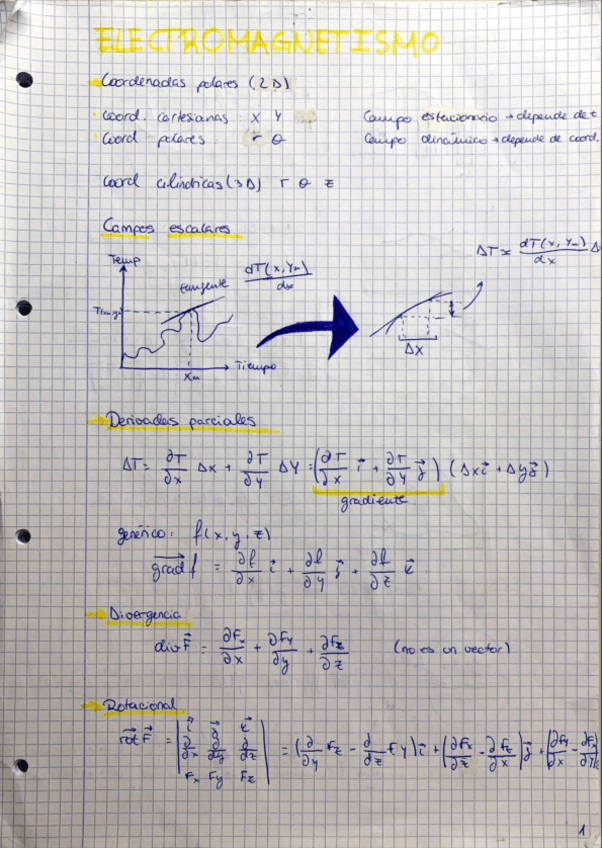 ELECTROMAGNETISMO
Coordenadas polares (2D)
Coord. cartesianas: x y
Campo estacionario → depende de t
Coord polares: r θ
Campo dinámico → depende de coord.
Coord cilíndricas (3D) r θ z
Campos escalares
Temp
tangente
dT(x, Ym)/dx
ΔT ≈ dT(x, Ym)/dx Δ
Δx
Tiempo
Xm
Derivadas parciales
ΔT = ∂T/∂x Δx + ∂T/∂y ΔY = (∂T/∂x i⃗ + ∂T/∂y j⃗) (Δx i⃗ + Δy j⃗)
gradiente
genérico: f(x, y, z)
grad f = ∂f/∂x i⃗ + ∂f/∂y j⃗ + ∂f/∂z k⃗
Divergencia
div F⃗ = ∂Fx/∂x + ∂Fy/∂y + ∂Fz/∂z (no es un vector)
Rotacional
rot F⃗ = | i⃗ j⃗ k⃗ | = (∂/∂y Fz - ∂/∂z Fy) i⃗ + (∂Fx/∂z - ∂Fz/∂x) j⃗ + (∂Fy/∂x - ∂Fx/∂y)
∂/∂x ∂/∂y ∂/∂z
Fx Fy Fz
1